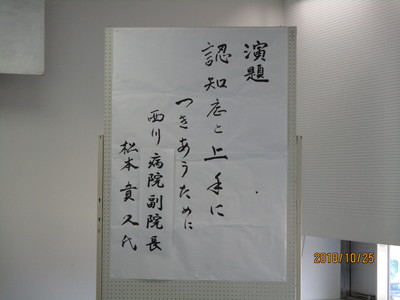 演題
認知症と上手に
つきあうために
西川病院副院長
松本貴久氏
2018/10/25